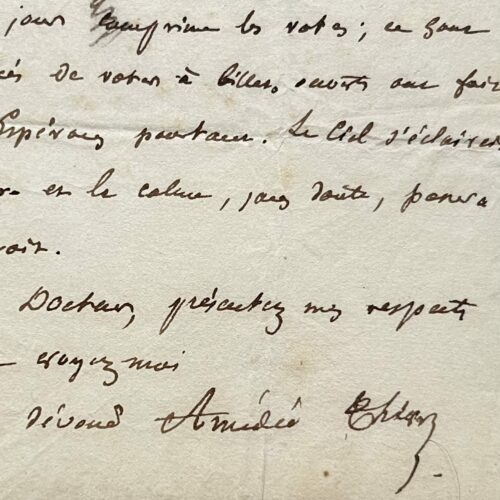 jours comprime les votes ; ce sont
és de voter à billets ouverts ont fait
Espérons pourtant. Le Ciel s'éclaircit
et le calme, sans doute, pensera
voir.
Docteur, présentez mes respects
croyez moi
dévoué Amédée Thierry